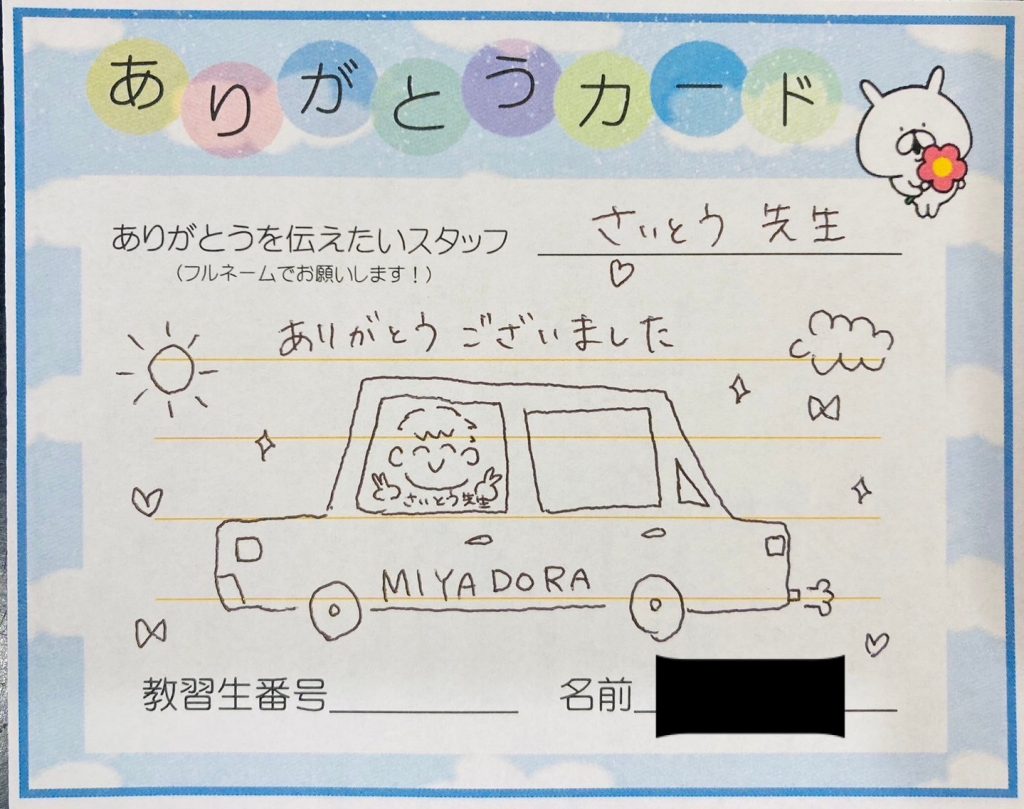 ありがとうカード
ありがとうを伝えたいスタッフ さいとう 先生
(フルネームでお願いします!)
ありがとう ございました
さいとう先生
MIYADORA
教習生番号 名前